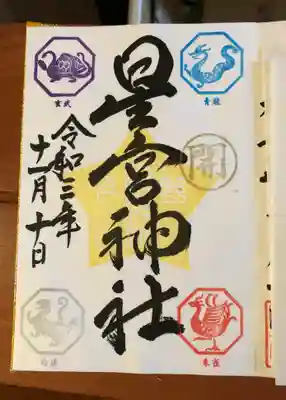 玄武
青龍
星宮神社
開
令和三年
十一月十日
白虎
朱雀